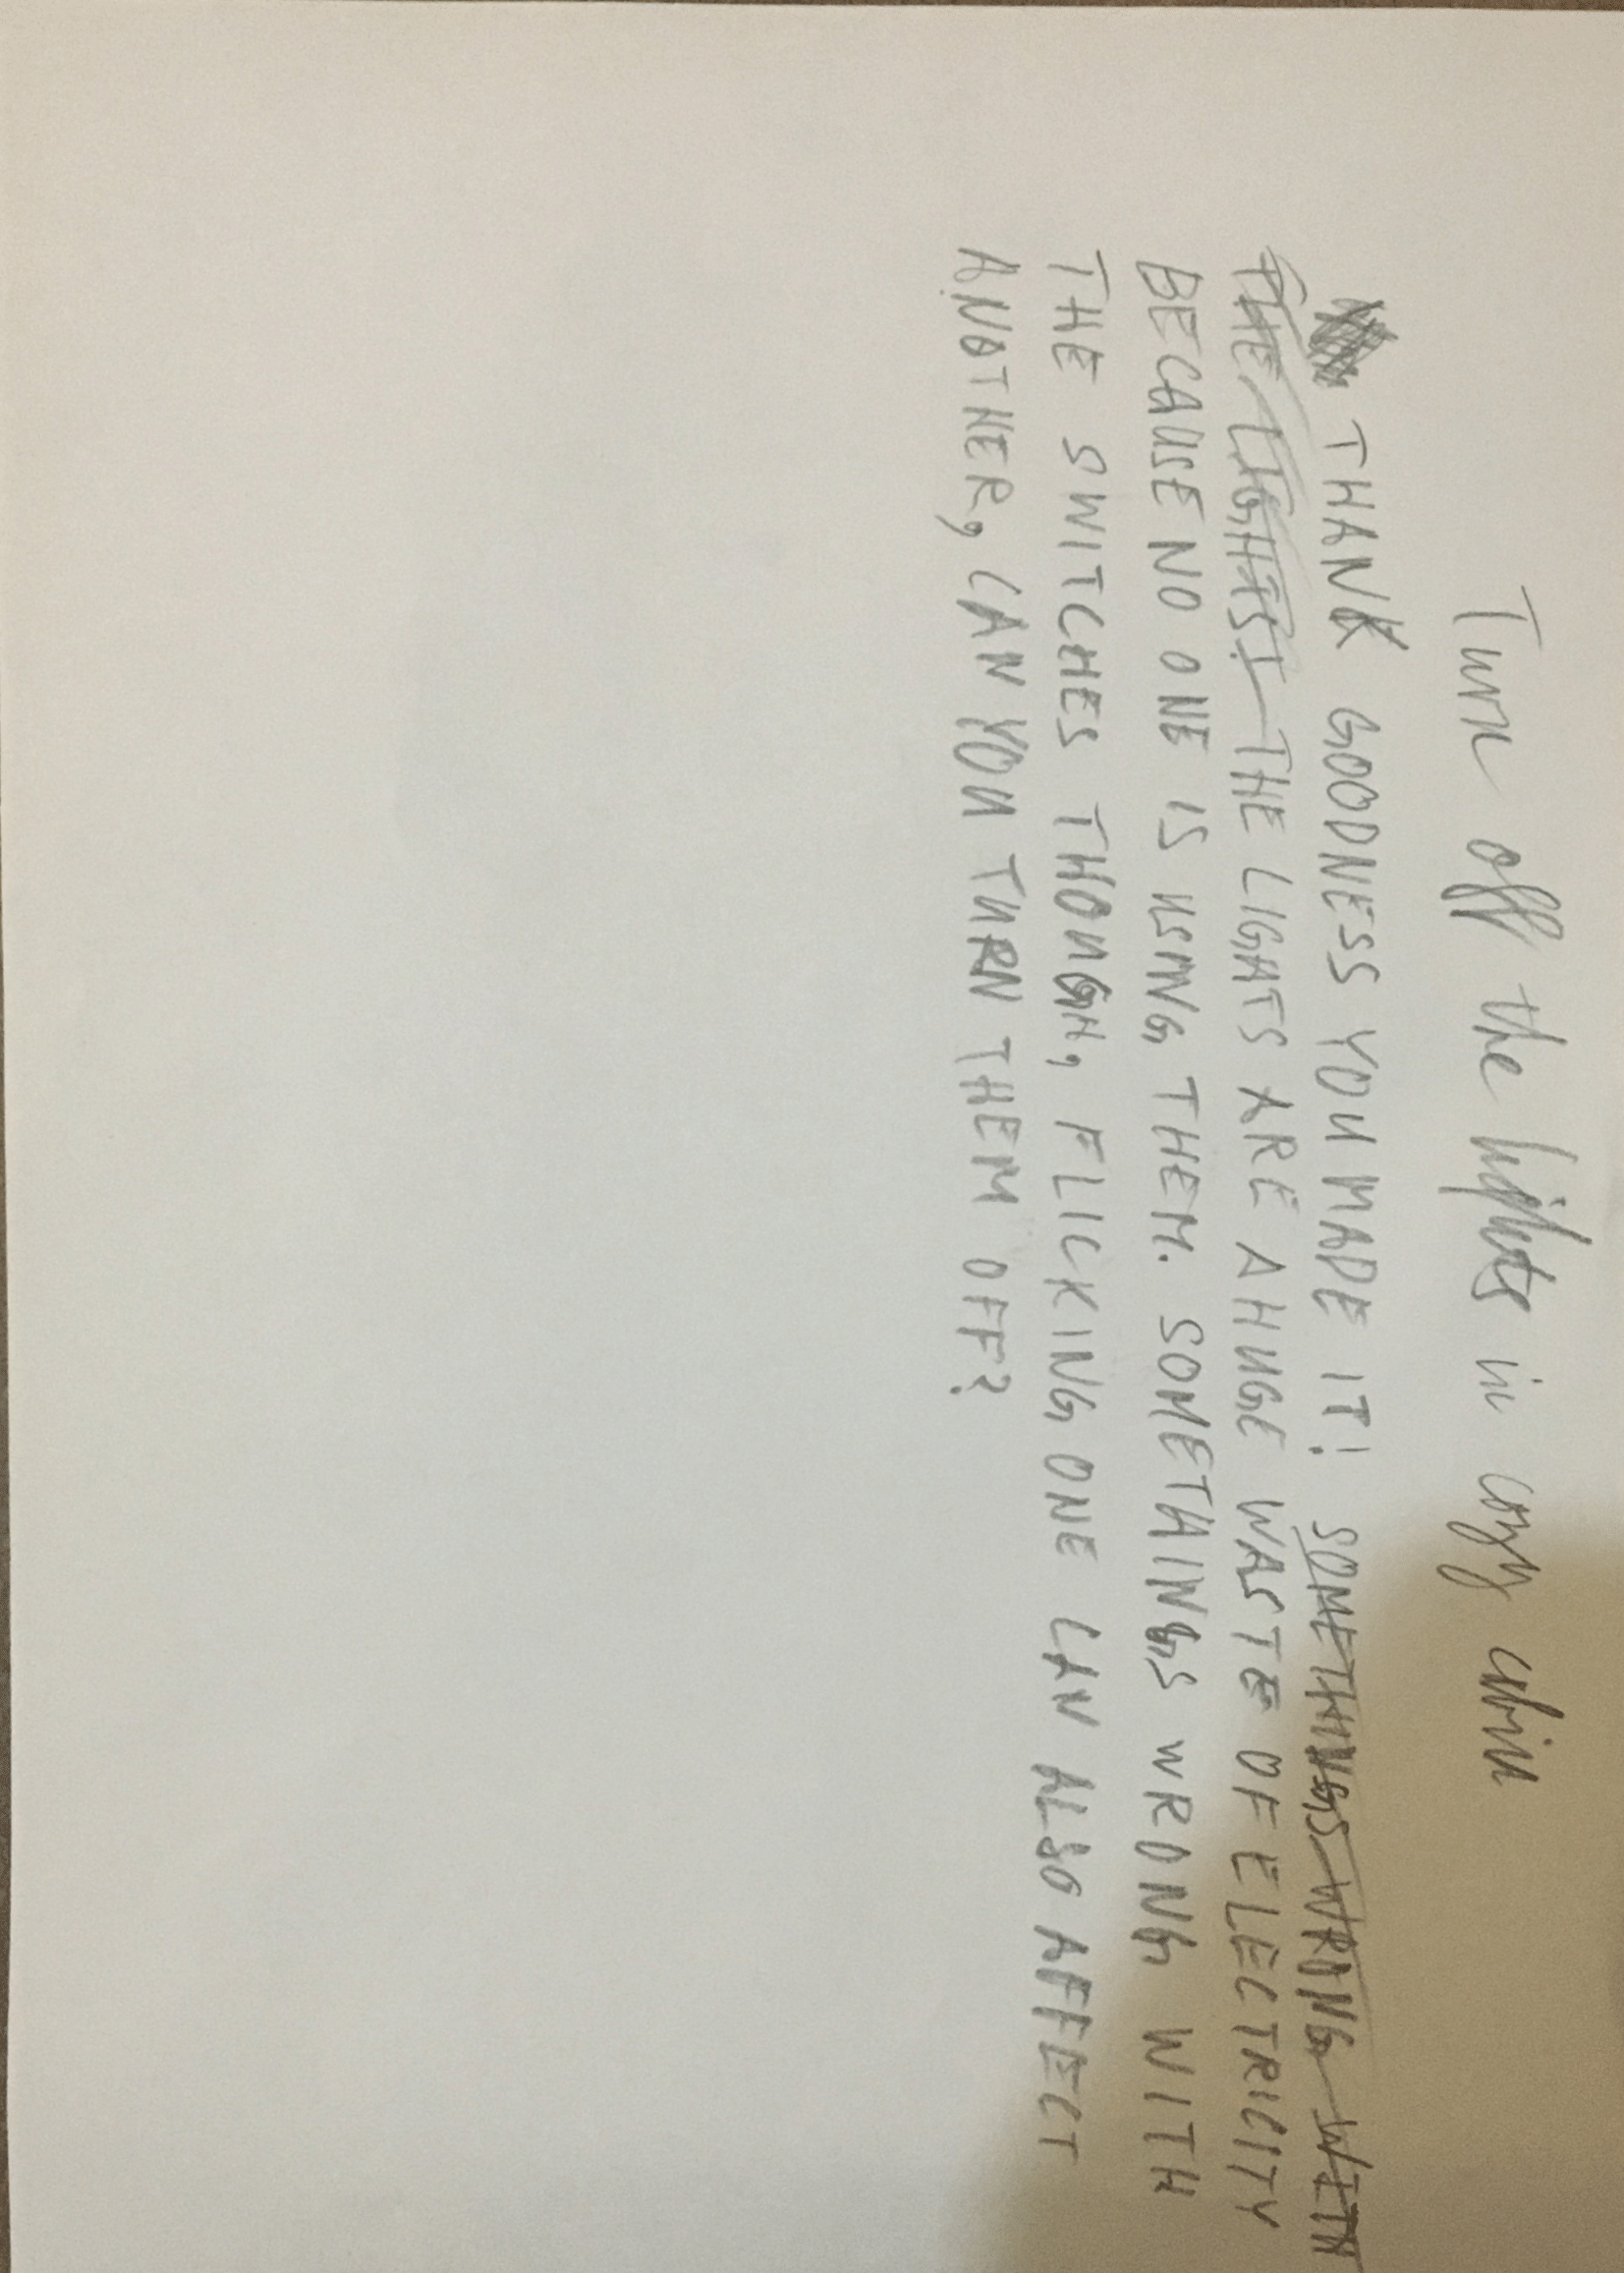 Turn off the lights in cozy cabin
THANK GOODNESS YOU MADE IT! SOMETHINGS WRONG WITH
THE LIGHTS! THE LIGHTS ARE A HUGE WASTE OF ELECTRICITY
BECAUSE NO ONE IS USING THEM. SOMETHINGS WRONG WITH
THE SWITCHES THOUGH, FLICKING ONE CAN ALSO AFFECT
ANOTHER, CAN YOU TURN THEM OFF?